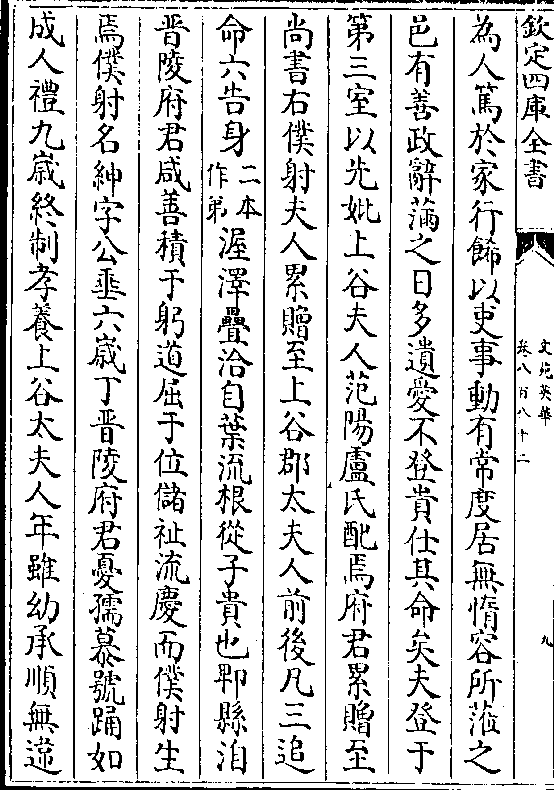 欽定四庫全書
文苑英華
卷八百八十二
九
為人篤於家行餙以吏事動有常度居無惰容所蒞之
邑有善政辭滿之日多遺愛不登貴仕其命矣夫登于
第三室以先妣上谷夫人范陽盧氏配焉府君累贈至
尚書右僕射夫人累贈至上谷郡太夫人前後凡三追
命六告身二本作弟渥澤疊洽自葉流根從子貴也鄆縣洎
晋陵府君咸善積于躬道屈于位儲祉流慶而僕射生
焉僕射名紳字公垂六歲丁晋陵府君憂孺慕號踊如
成人禮九歲終制孝養上谷太夫人年雖幼承順無違